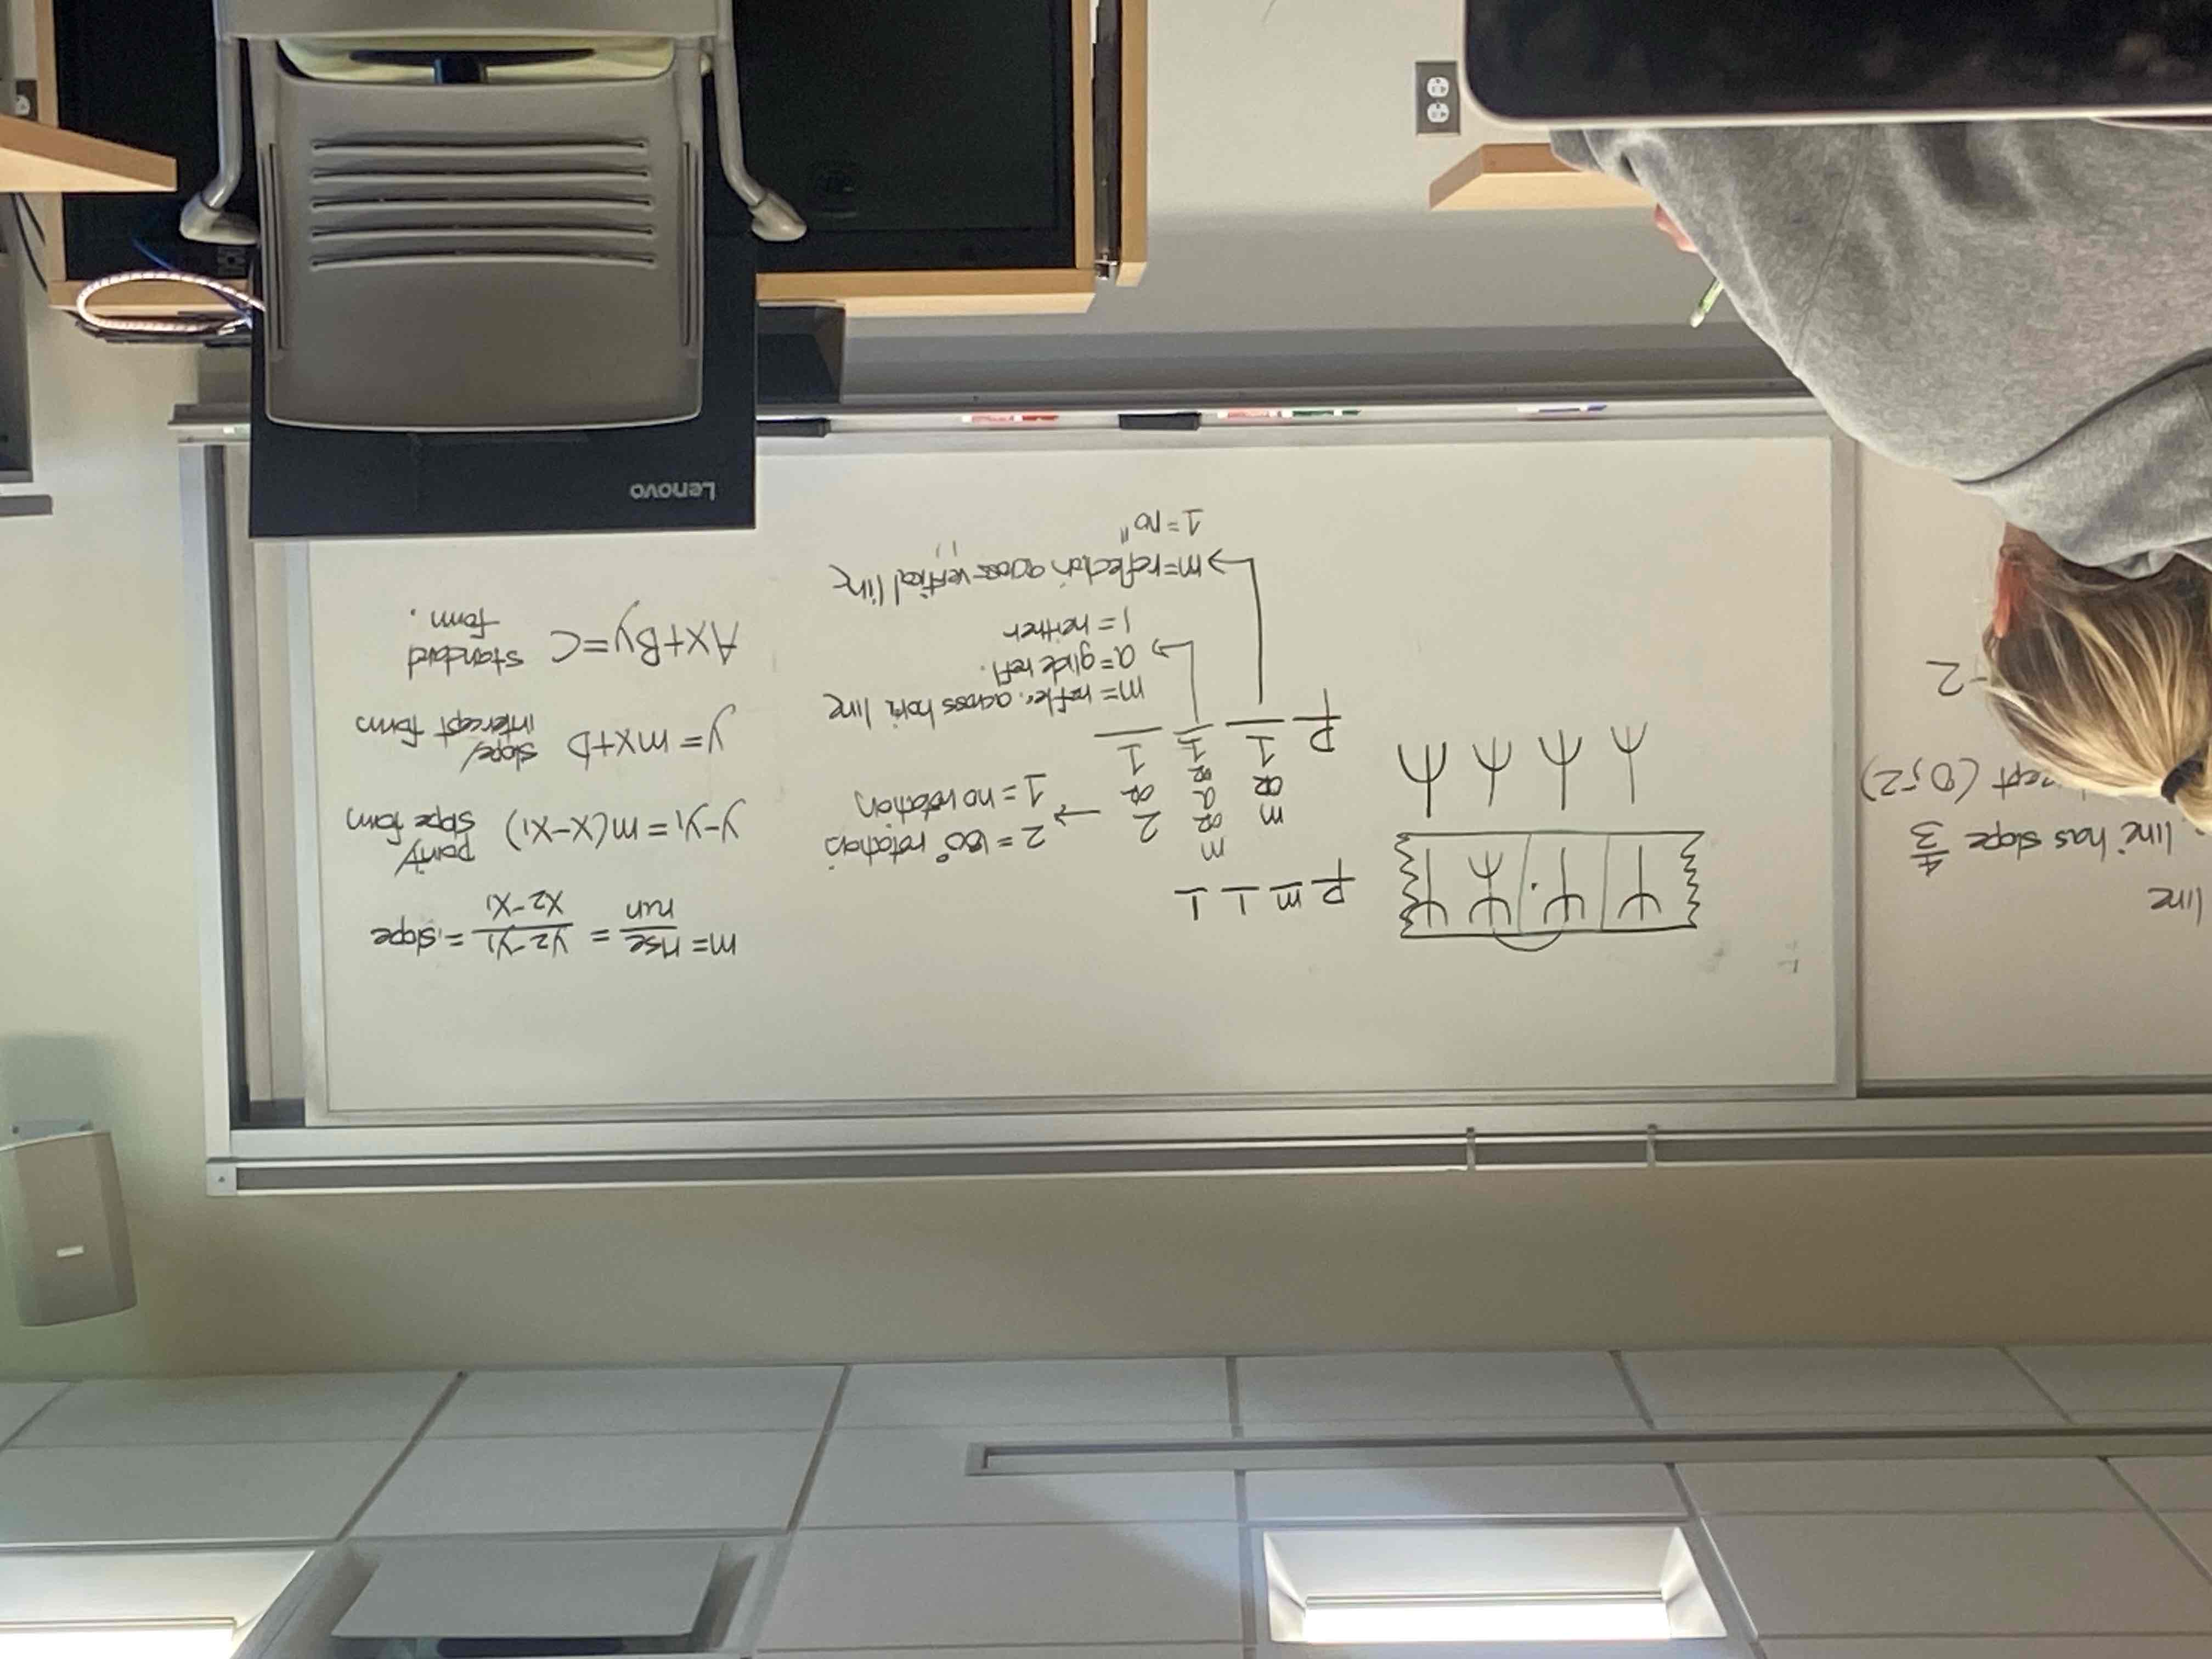 line
line has slope 4/3
(0,-2)
-2
p m 1 1
p 1 1 1
or or or
m a 2
or
m
2 = 180° rotation
1 = no rotation
m = reflec. across hori. line
a = glide refl.
1 = neither
m = reflection across vertical line
1 = no "        "
m = rise/run = y2-y1/x2-x1 = slope
y-y1 = m(x-x1) point/slope form
y = mx+b slope/intercept form
Ax+By=C standard form.
Lenovo